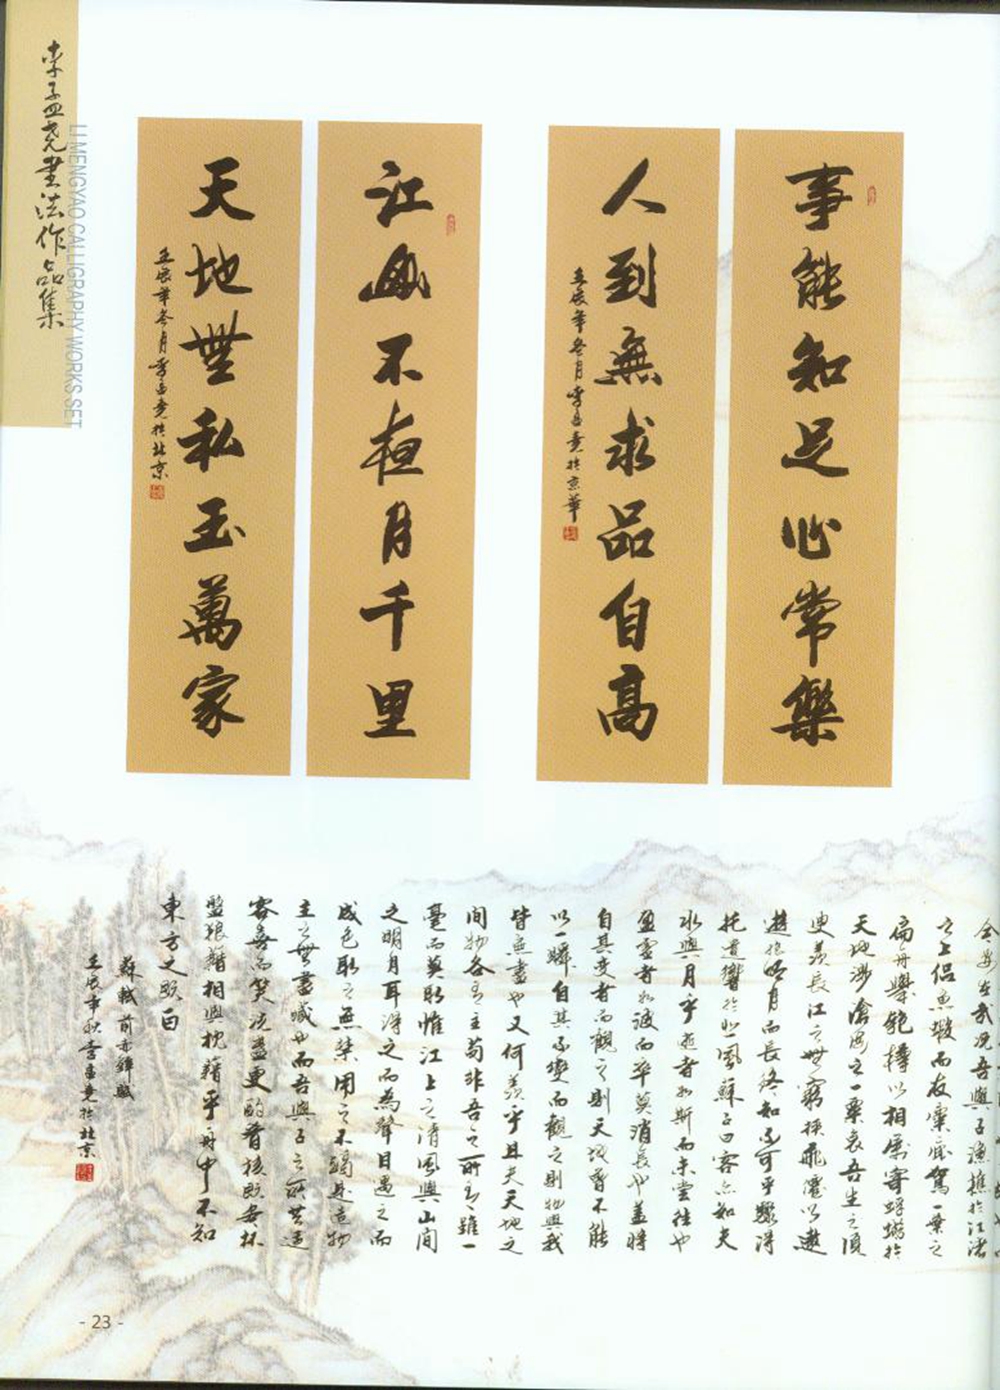 李孟尧书法作品集
LI MENGYAO CALLIGRAPHY WORKS SET
事能知足心常樂
人到無求品自高
壬辰年冬月李孟尧於京華
江山不夜月千里
天地無私玉萬家
壬辰年冬月李孟尧於北京
今安在哉况吾與子漁樵於江渚
之上侣魚蝦而友麋鹿駕一葉之
扁舟舉匏樽以相屬寄蜉蝣於
天地渺滄海之一粟哀吾生之須
臾羡長江之無窮挾飛僊以遨
遊抱明月而長終知不可乎驟得
托遺響於悲風蘇子曰客亦知夫
水與月乎逝者如斯而未嘗往也
盈虚者如彼而卒莫消長也盖將
自其變者而觀之則天地曾不能
以一瞬自其不變而觀之則物與我
皆無盡也又何羡乎且夫天地之
間物各有主苟非吾之所有雖一
毫而莫取惟江上之清風與山間
之明月耳得之而為聲目遇之而
成色取之無禁用之不竭是造物
主之無盡藏也而吾與子之所共適
客喜而笑洗盞更酌肴核既盡杯
盤狼藉相與枕藉乎舟中不知
東方之既白
蘇軾前赤壁賦
壬辰年秋李孟尧於北京
- 23 -